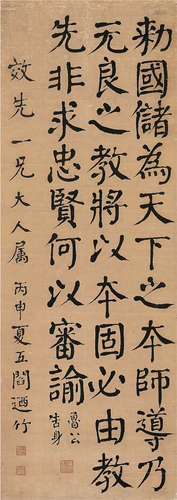 勅國儲為天下之本師導乃
元良之教將以本固必由教
先非求忠賢何以審諭
魯公
告身
效先一兄大人属 丙申夏五閻迺竹